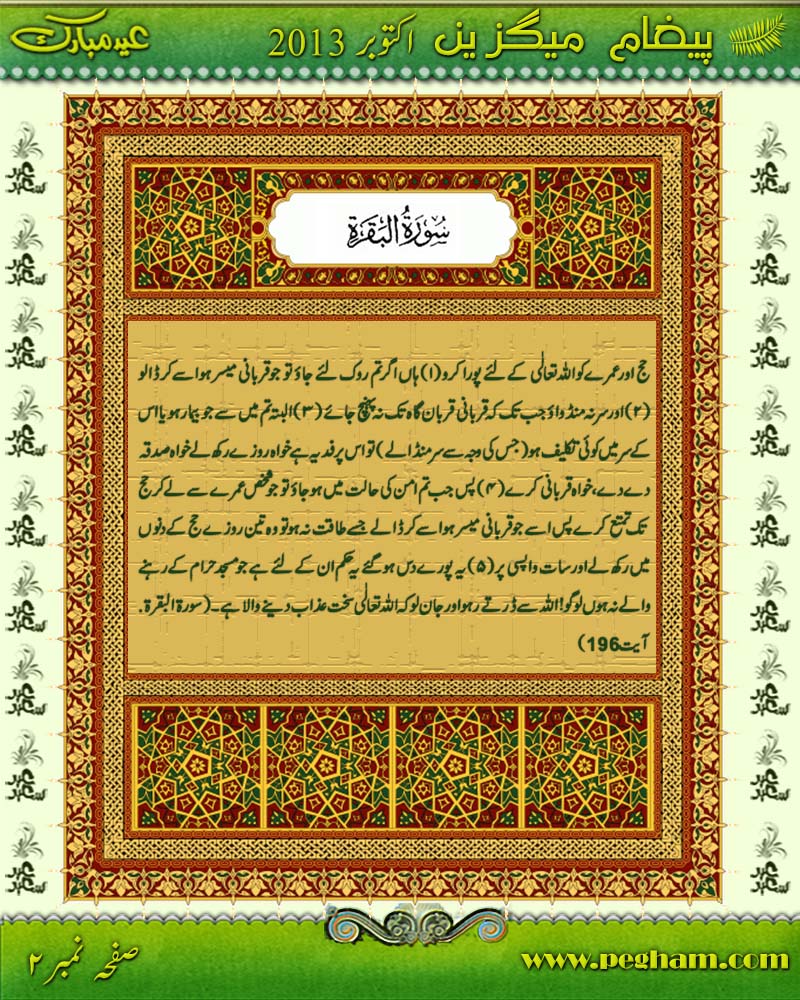 پیغام میگزین اکتوبر 2013
عید مبارک
سُوۡرَةُ الۡبَقَرَةِ
حج اور عمرے کو اللہ تعالٰی کے لئے پورا کرو (۱) ہاں اگر تم روک لئے جاؤ تو جو قربانی میسر ہو اسے کر ڈالو
(۲) اور سر نہ منڈواؤ جب تک کہ قربانی قربان گاہ تک نہ پہنچ جائے (۳) البتہ تم میں سے جو بیمار ہو یا اس
کے سر میں کوئی تکلیف ہو (جس کی وجہ سے سر منڈالے) تو اس پر فدیہ ہے خواہ روزے رکھ لے خواہ صدقہ
دے دے، خواہ قربانی کرے (۴) پس جب تم امن کی حالت میں ہو جاؤ تو جو شخص عمرے سے لے کر حج
تک تمتع کرے پس اسے جو قربانی میسر ہو اسے کر ڈالے جسے طاقت نہ ہو تو وہ تین روزے حج کے دنوں
میں رکھ لے اور سات واپسی پر (۵) یہ پورے دس ہو گئے یہ حکم ان کے لئے ہے جو مسجد حرام کے رہنے
والے نہ ہوں لوگو! اللہ سے ڈرتے رہو اور جان لو کہ اللہ تعالٰی سخت عذاب دینے والا ہے۔ (سورۃ البقرۃ.
آیت 196)
صفحہ نمبر ۲
www.pegham.com